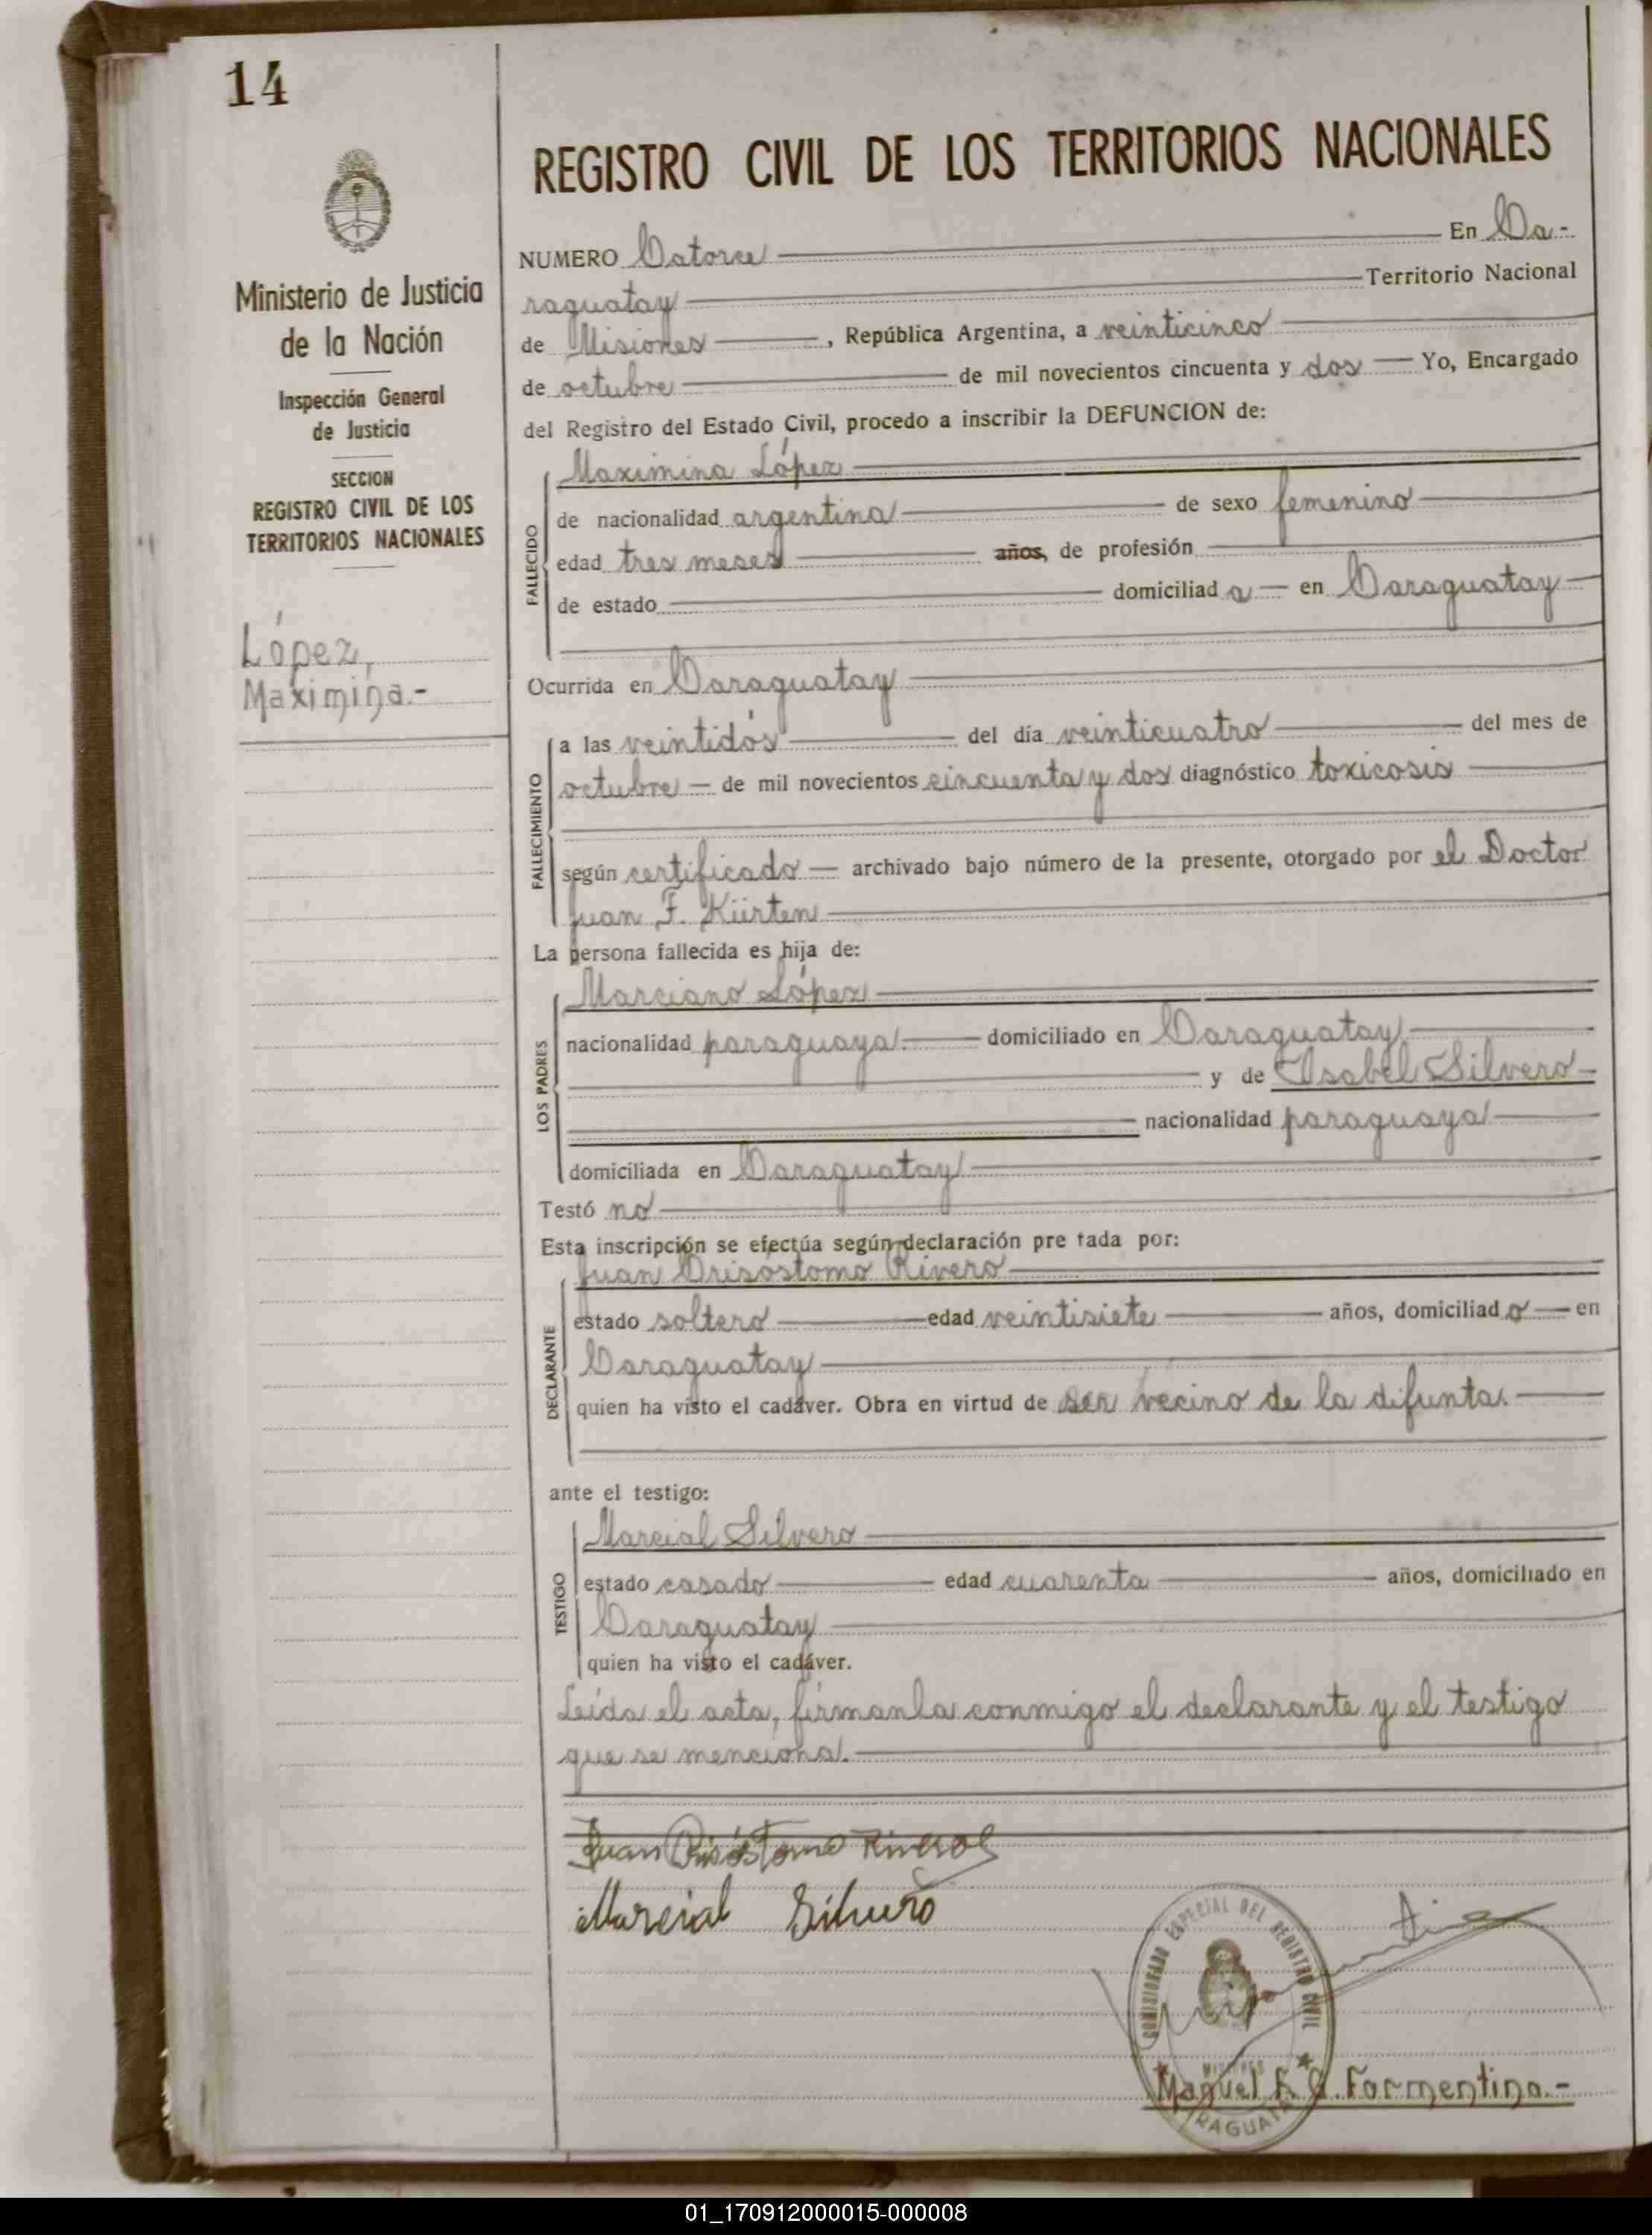 14
REGISTRO CIVIL DE LOS TERRITORIOS NACIONALES
Ministerio de Justicia
de la Nación
Inspección General
de Justicia
SECCION
REGISTRO CIVIL DE LOS
TERRITORIOS NACIONALES
López,
Maximina.-
NUMERO Catorce En Ca-
raguatay Territorio Nacional
de Misiones, República Argentina, a veinticinco
de octubre de mil novecientos cincuenta y dos Yo, Encargado
del Registro del Estado Civil, procedo a inscribir la DEFUNCION de:
FALLECIDO
Maximina López
de nacionalidad argentina de sexo femenino
edad tres meses años, de profesión
de estado domiciliad a en Caraguatay
Ocurrida en Caraguatay
FALLECIMIENTO
a las veintidós del día veinticuatro del mes de
octubre de mil novecientos cincuenta y dos diagnóstico toxicosis
según certificado archivado bajo número de la presente, otorgado por el Doctor
Juan F. Kürten
La persona fallecida es hija de:
LOS PADRES
Marciano López
nacionalidad paraguaya. domiciliado en Caraguatay
y de Isabel Silvero
nacionalidad paraguaya
domiciliada en Caraguatay
Testó no
Esta inscripción se efectúa según declaración pre tada por:
DECLARANTE
Juan Crisóstomo Rivero
estado soltero edad veintisiete años, domiciliad o en
Caraguatay
quien ha visto el cadáver. Obra en virtud de ser vecino de la difunta.
ante el testigo:
TESTIGO
Marcial Silvero
estado casado edad cuarenta años, domiciliado en
Caraguatay
quien ha visto el cadáver.
Leída el acta, fírmanla conmigo el declarante y el testigo
que se menciona.
Juan Crisóstomo Riveros
Marcial Silvero
COMISIONADO ESPECIAL DEL REGISTRO CIVIL
MISIONES
Manuel F. G. Formentino.-
RAGUATA
01_170912000015-000008